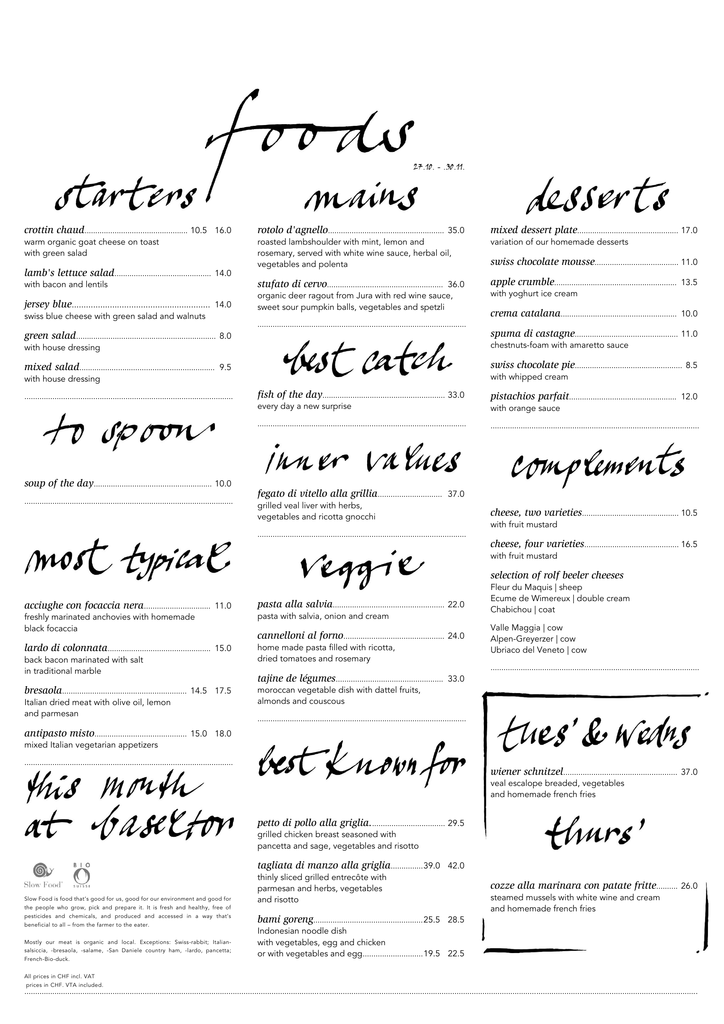 foods
27.10. - .30.11.
starters
crottin chaud 10.5 16.0
warm organic goat cheese on toast
with green salad
lamb's lettuce salad 14.0
with bacon and lentils
jersey blue 14.0
swiss blue cheese with green salad and walnuts
green salad 8.0
with house dressing
mixed salad 9.5
with house dressing
to spoon
soup of the day 10.0
most typical
acciughe con focaccia nera 11.0
freshly marinated anchovies with homemade
black focaccia
lardo di colonnata 15.0
back bacon marinated with salt
in traditional marble
bresaola 14.5 17.5
Italian dried meat with olive oil, lemon
and parmesan
antipasto misto 15.0 18.0
mixed Italian vegetarian appetizers
this month
at baseltor
Slow Food
BIO
SUISSE
Slow Food is food that's good for us, good for our environment and good for
the people who grow, pick and prepare it. It is fresh and healthy, free of
pesticides and chemicals, and produced and accessed in a way that's
beneficial to all – from the farmer to the eater.
Mostly our meat is organic and local. Exceptions: Swiss-rabbit; Italian-
salsiccia, -bresaola, -salame, -San Daniele country ham, -lardo, pancetta;
French-Bio-duck.
All prices in CHF incl. VAT
prices in CHF. VTA included.
mains
rotolo d'agnello 35.0
roasted lambshoulder with mint, lemon and
rosemary, served with white wine sauce, herbal oil,
vegetables and polenta
stufato di cervo 36.0
organic deer ragout from Jura with red wine sauce,
sweet sour pumpkin balls, vegetables and spetzli
best catch
fish of the day 33.0
every day a new surprise
inner values
fegato di vitello alla grillia 37.0
grilled veal liver with herbs,
vegetables and ricotta gnocchi
veggie
pasta alla salvia 22.0
pasta with salvia, onion and cream
cannelloni al forno 24.0
home made pasta filled with ricotta,
dried tomatoes and rosemary
tajine de légumes 33.0
moroccan vegetable dish with dattel fruits,
almonds and couscous
best known for
petto di pollo alla griglia. 29.5
grilled chicken breast seasoned with
pancetta and sage, vegetables and risotto
tagliata di manzo alla griglia 39.0 42.0
thinly sliced grilled entrecôte with
parmesan and herbs, vegetables
and risotto
bami goreng 25.5 28.5
Indonesian noodle dish
with vegetables, egg and chicken
or with vegetables and egg 19.5 22.5
desserts
mixed dessert plate 17.0
variation of our homemade desserts
swiss chocolate mousse 11.0
apple crumble 13.5
with yoghurt ice cream
crema catalana 10.0
spuma di castagne 11.0
chestnuts-foam with amaretto sauce
swiss chocolate pie 8.5
with whipped cream
pistachios parfait 12.0
with orange sauce
complements
cheese, two varieties 10.5
with fruit mustard
cheese, four varieties 16.5
with fruit mustard
selection of rolf beeler cheeses
Fleur du Maquis | sheep
Ecume de Wimereux | double cream
Chabichou | coat
Valle Maggia | cow
Alpen-Greyerzer | cow
Ubriaco del Veneto | cow
tues' & wedns
wiener schnitzel 37.0
veal escalope breaded, vegetables
and homemade french fries
thurs'
cozze alla marinara con patate fritte 26.0
steamed mussels with white wine and cream
and homemade french fries